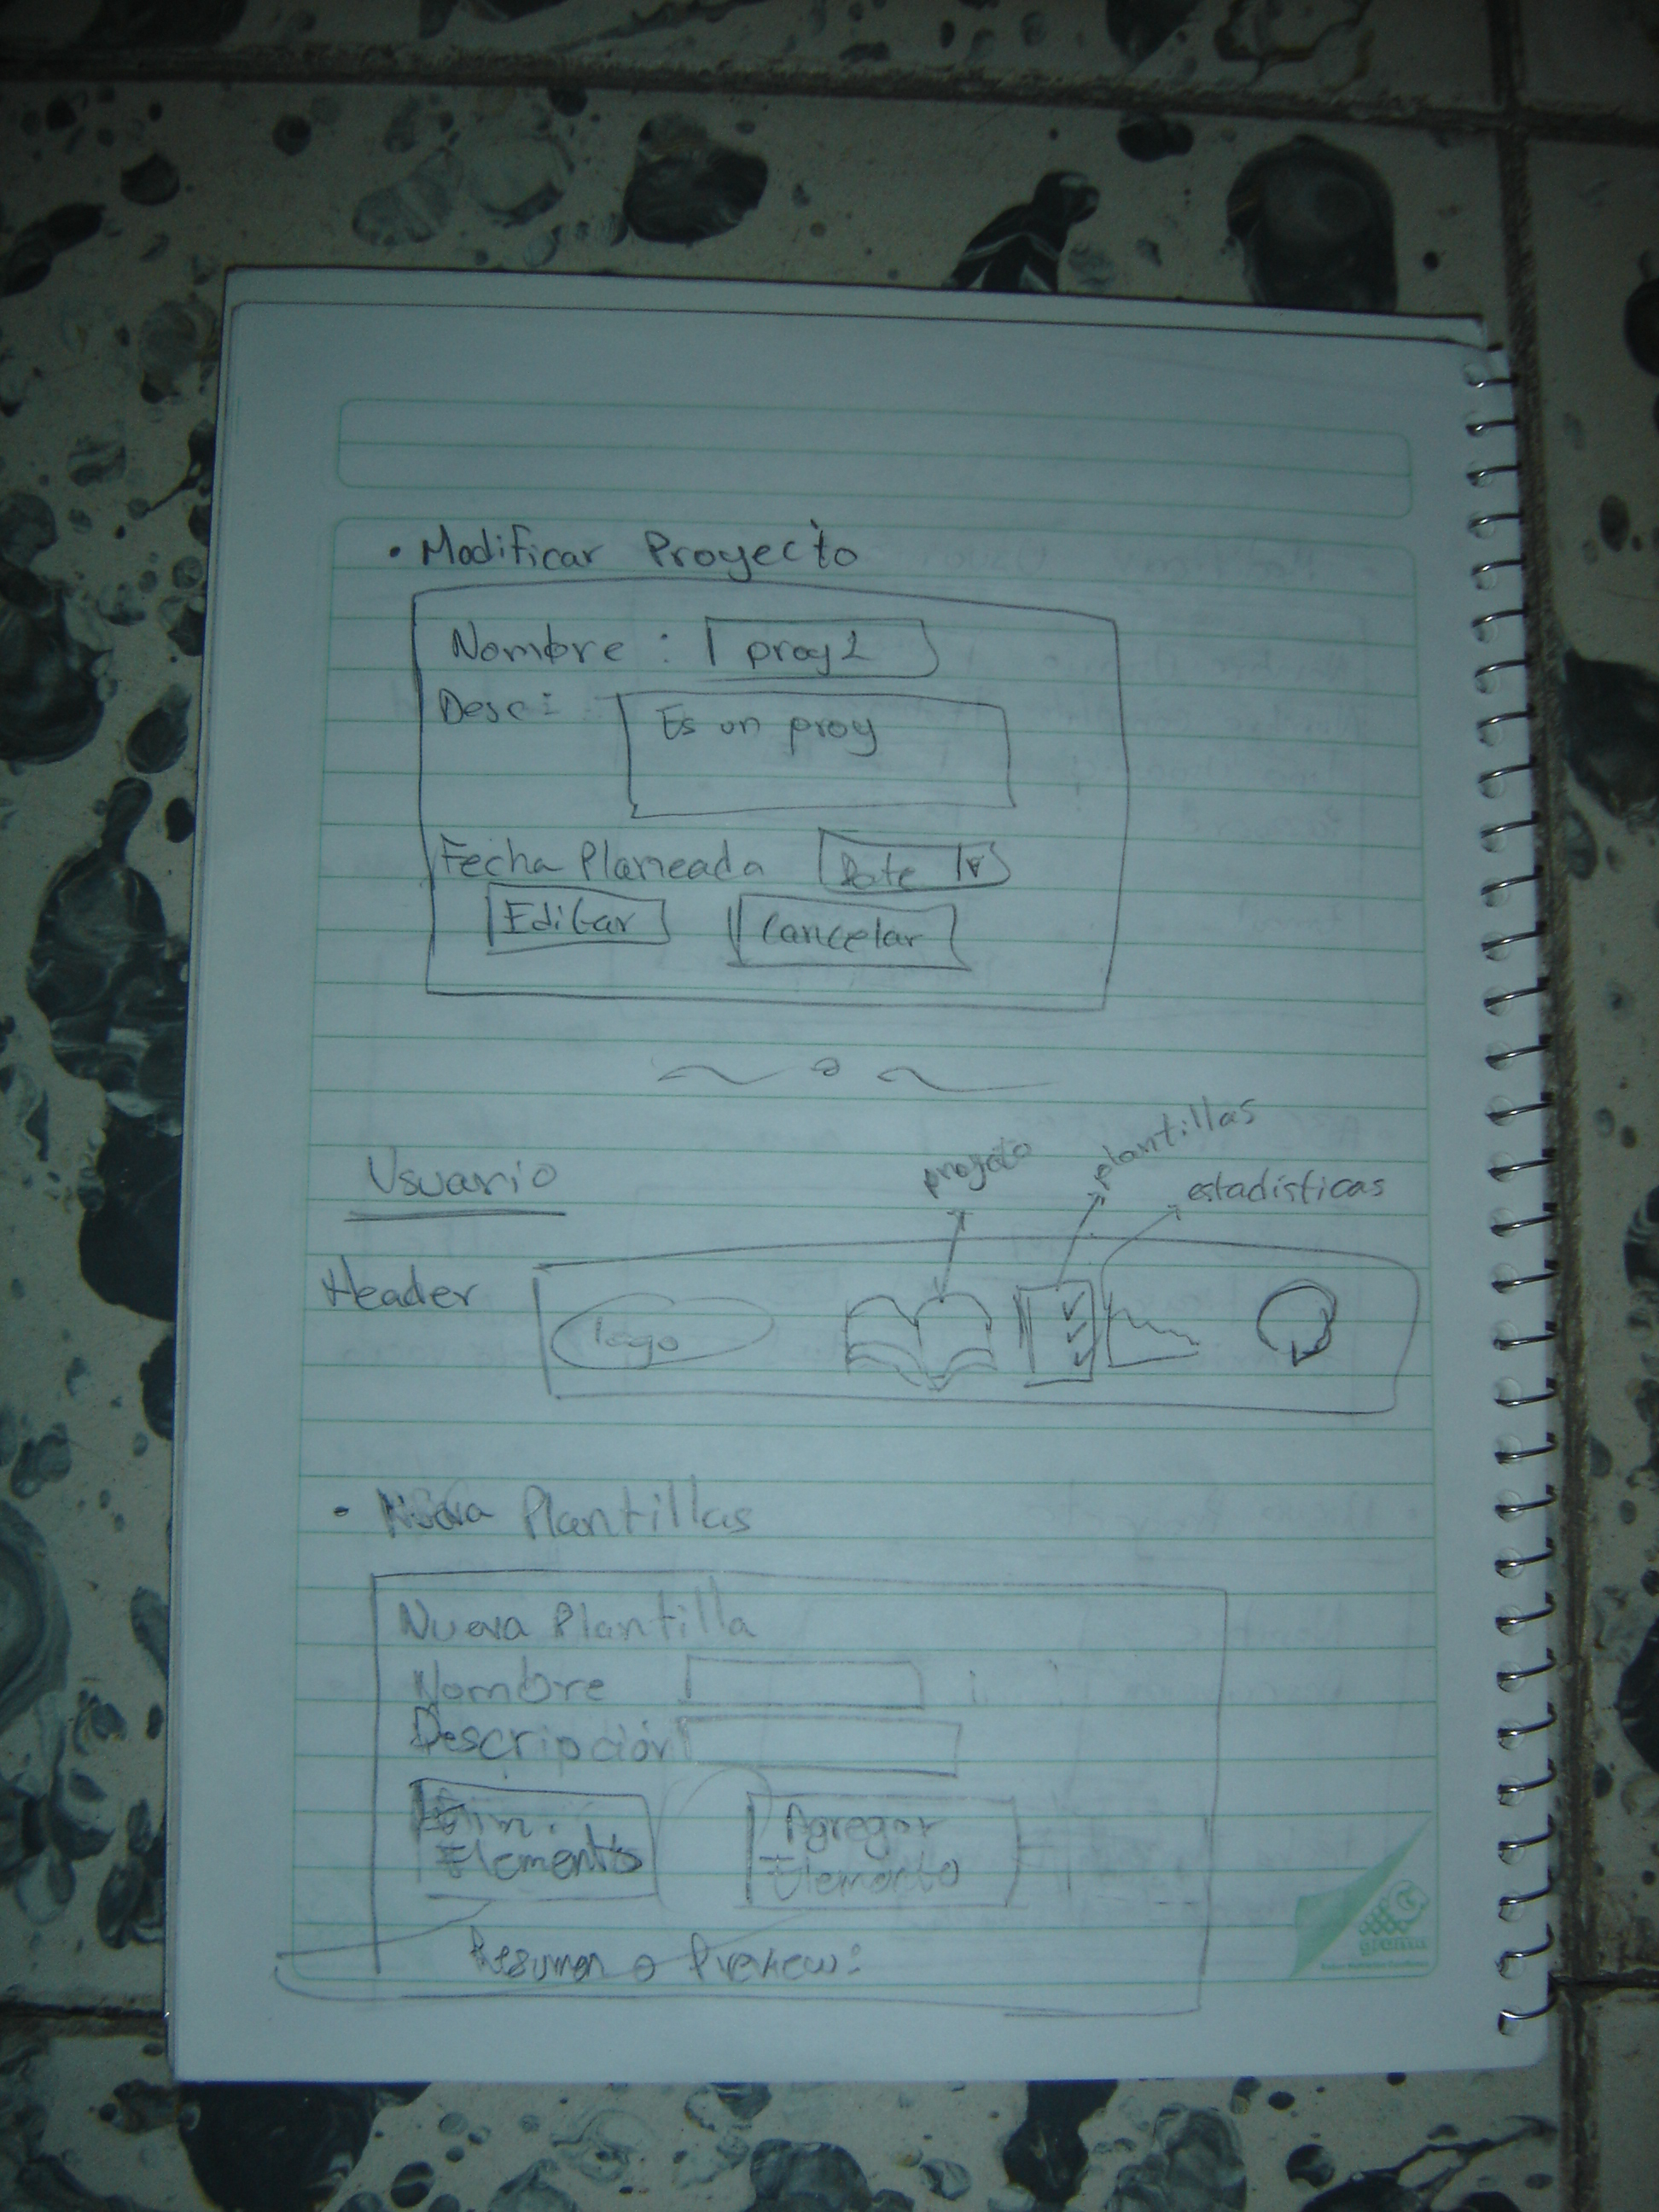 • Modificar Proyecto
Nombre : proy1
Desc: Es un proy
Fecha Planeada Date
Editar Cancelar
Usuario
proyecto plantillas estadísticas
Header logo
• Nueva Plantillas
Nueva Plantilla
Nombre
Descripción
Elim. Elemento
Agregar Elemento
Resumen o Preview: